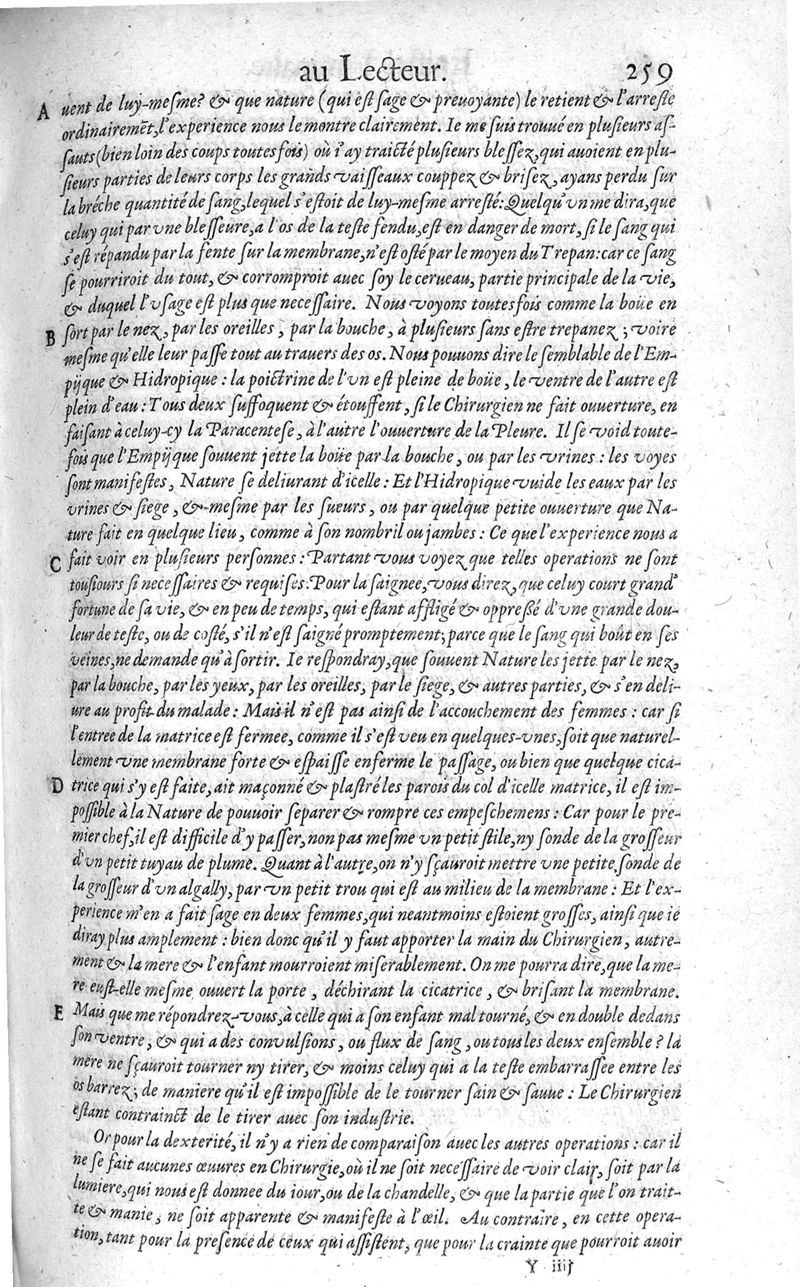 au Lecteur. 259
A uent de luy-mesme? & que nature (qui est sage & preuoyante) le retient & l'arreste
ordinairemēt, l'experience nous le montre clairement. Ie me suis trouué en plusieurs as-
sauts (bien loin des coups toutesfois) où i'ay traicté plusieurs blessez, qui auoient en plu-
sieurs parties de leurs corps les grands vaisseaux couppez & brisez, ayans perdu sur
la brêche quantité de sang, lequel s'estoit de luy-mesme arresté: Quelqu'vn me dira, que
celuy qui par vne blesseure, a l'os de la teste fendu, est en danger de mort, si le sang qui
s'est répandu par la fente sur la membrane, n'est osté par le moyen du Trepan: car ce sang
se pourriroit du tout, & corromproit auec soy le cerueau, partie principale de la vie,
& duquel l'vsage est plus que necessaire. Nous voyons toutesfois comme la boüe en
B sort par le nez, par les oreilles, par la bouche, à plusieurs sans estre trepanez; voire
mesme qu'elle leur passe tout au trauers des os. Nous pouuons dire le semblable de l'Em-
pijque & Hidropique: la poictrine de l'vn est pleine de boüe, le ventre de l'autre est
plein d'eau: Tous deux suffoquent & étouffent, si le Chirurgien ne fait ouuerture, en
faisant à celuy-cy la Paracentese, à l'autre l'ouuerture de la Pleure. Il se void toute-
fois que l'Empijque souuent jette la boüe par la bouche, ou par les vrines: les voyes
sont manifestes, Nature se deliurant d'icelle: Et l'Hidropique vuide les eaux par les
vrines & siege, & mesme par les sueurs, ou par quelque petite ouuerture que Na-
ture fait en quelque lieu, comme à son nombril ou jambes: Ce que l'experience nous a
C fait voir en plusieurs personnes: Partant vous voyez que telles operations ne sont
tousiours si necessaires & requises: Pour la saignee, vous direz, que celuy court grand'
fortune de sa vie, & en peu de temps, qui estant affligé & oppressé d'vne grande dou-
leur de teste, ou de costé, s'il n'est saigné promptement; parce que le sang qui boût en ses
veines, ne demande qu'à sortir. Ie respondray, que souuent Nature les jette par le nez,
par la bouche, par les yeux, par les oreilles, par le siege, & autres parties, & s'en deli-
ure au profit du malade: Mais il n'est pas ainsi de l'accouchement des femmes: car si
l'entree de la matrice est fermee, comme il s'est veu en quelques-vnes, soit que naturel-
lement vne membrane forte & espaisse enferme le passage, ou bien que quelque cica-
D trice qui s'y est faite, ait maçonné & plastré les parois du col d'icelle matrice, il est im-
possible à la Nature de pouuoir separer & rompre ces empeschemens: Car pour le pre-
mier chef, il est difficile d'y passer, non pas mesme vn petit stile, ny sonde de la grosseur
d'vn petit tuyau de plume. Quant à l'autre, on n'y sçauroit mettre vne petite sonde de
la grosseur d'vn algally, par vn petit trou qui est au milieu de la membrane: Et l'ex-
perience m'en a fait sage en deux femmes, qui neantmoins estoient grosses, ainsi que ie
diray plus amplement: bien donc qu'il y faut apporter la main du Chirurgien, autre-
ment & la mere & l'enfant mourroient miserablement. On me pourra dire, que la me-
re eust-elle mesme ouuert la porte, déchirant la cicatrice, & brisant la membrane.
E Mais que me répondrez-vous, à celle qui a son enfant mal tourné, & en double dedans
son ventre, & qui a des conuulsions, ou flux de sang, ou tous les deux ensemble? la
mere ne sçauroit tourner ny tirer, & moins celuy qui a la teste embarrassee entre les
os barrez; de maniere qu'il est impossible de le tourner sain & sauue: Le Chirurgien
estant contrainct de le tirer auec son industrie.
Or pour la dexterité, il n'y a rien de comparaison auec les autres operations: car il
ne se fait aucunes œuures en Chirurgie, où il ne soit necessaire de voir clair, soit par la
lumiere, qui nous est donnee du iour, ou de la chandelle, & que la partie que l'on trait-
te & manie, ne soit apparente & manifeste à l'œil. Au contraire, en cette opera-
tion, tant pour la presence de ceux qui assistent, que pour la crainte que pourroit auoir
Y iiij